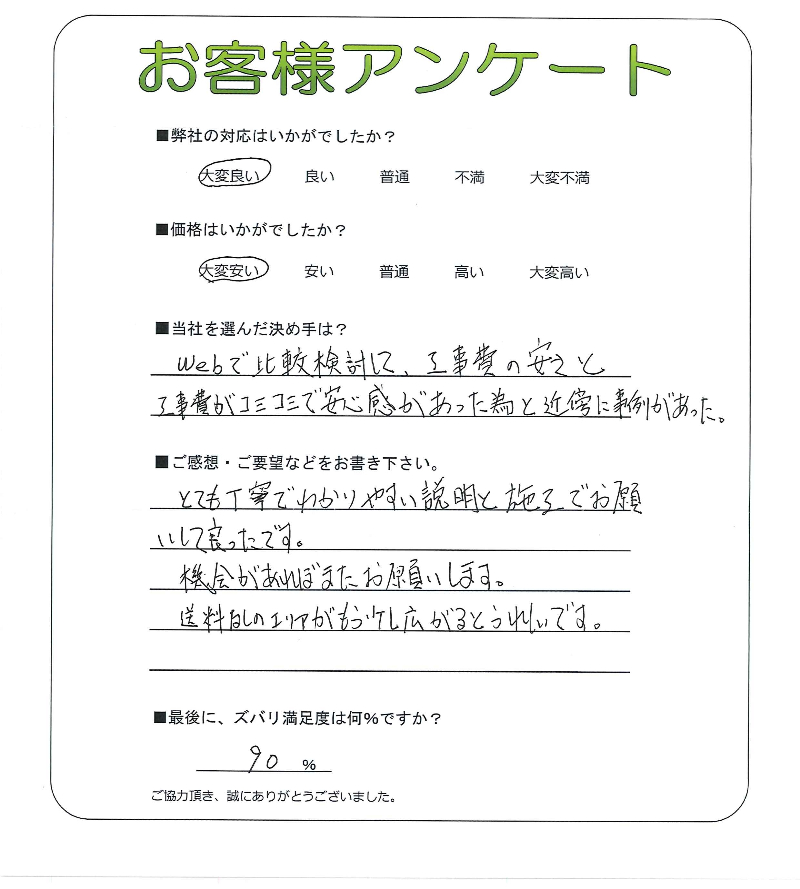 お客様アンケート
■弊社の対応はいかがでしたか？
大変良い 良い 普通 不満 大変不満
■価格はいかがでしたか？
大変安い 安い 普通 高い 大変高い
■当社を選んだ決め手は？
Webで比較検討して、工事費の安さと
工事費がコミコミで安心感があった為と近傍に事例があった。
■ご感想・ご要望などをお書き下さい。
とても丁寧でわかりやすい説明と施工でお願
いして良かったです。
機会があればまたお願いします。
送料なしのエリアがもう少し広がるとうれしいです。
■最後に、ズバリ満足度は何%ですか？
90 %
ご協力頂き、誠にありがとうございました。